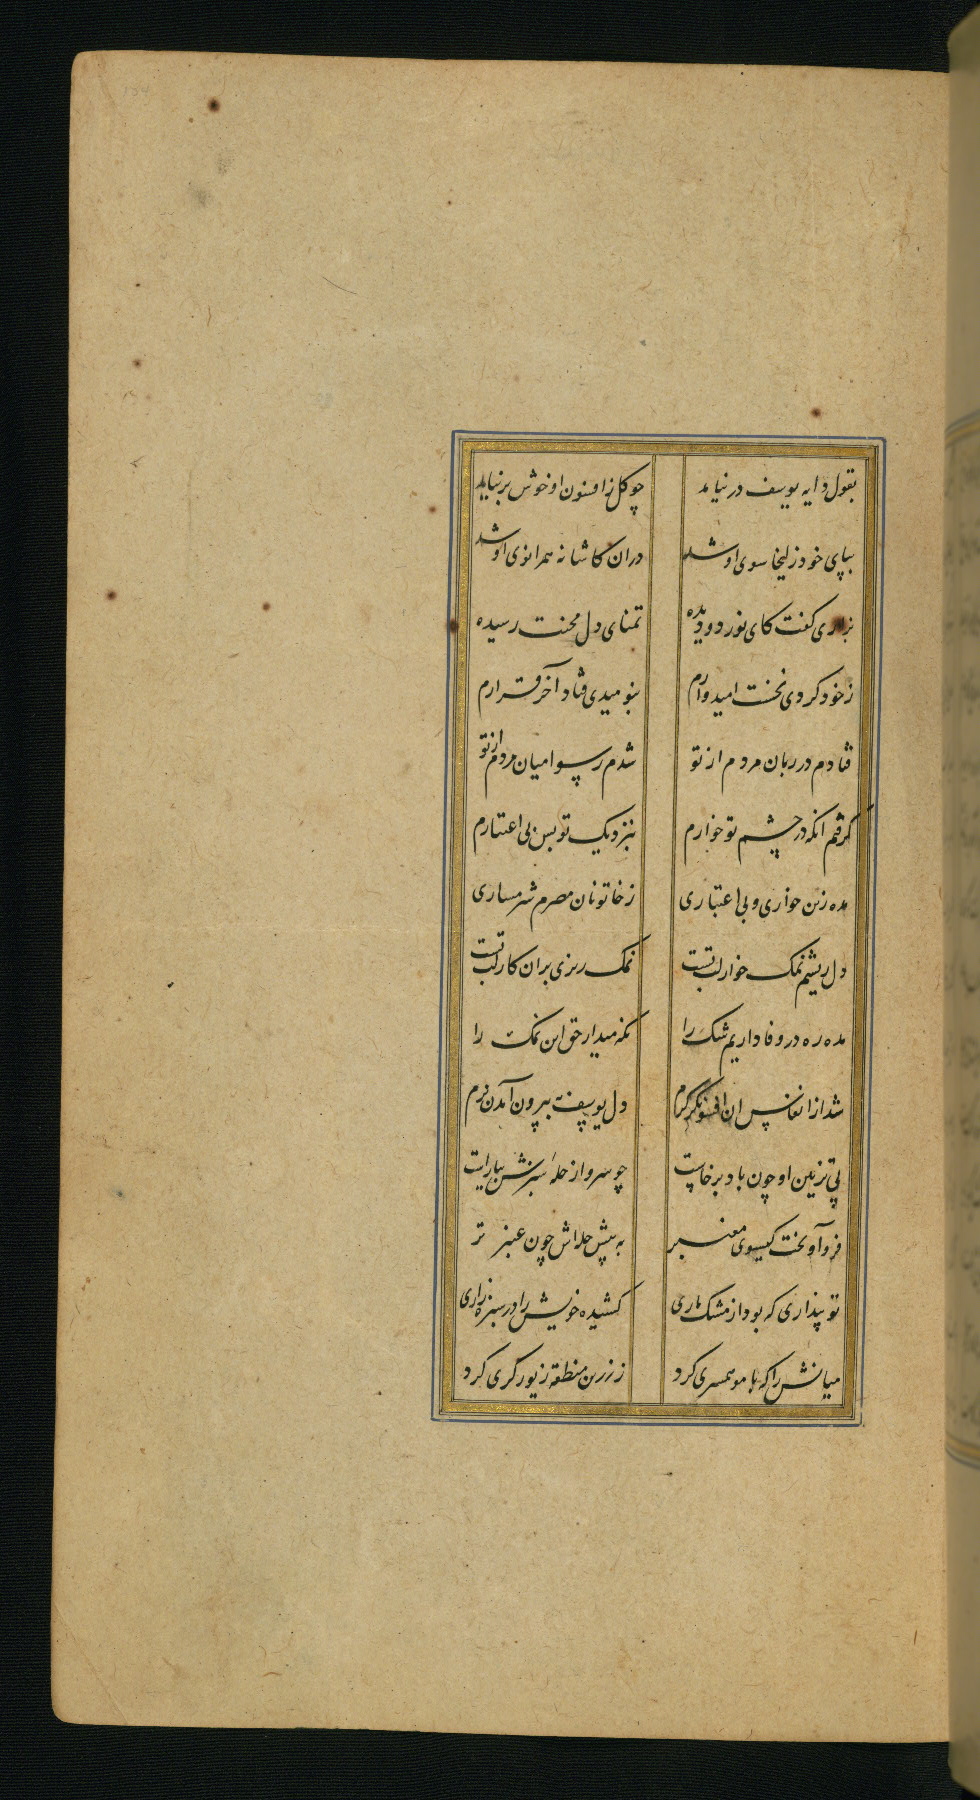 بقول دایه یوسف در نیامد چو گل ز افسون او خوش بر نیامد
بپای خود زلیخا سوی او شد در ان کاشانه همزانوی او شد
بزاری گفت کای نور دو دیده تمنای دل محنت رسیده
ز خود کردی نخست امیدوارم بنومیدی فتاد آخر قرارم
فتادم در زبان مردم از تو شدم رسوا میان مردم از تو
گرفتم انکه در چشم تو خوارم بنزدیک تو بس بی اعتبارم
مده زین خواری و بی اعتباری ز خاتونان مصرم شرمساری
دل ریشم نمک خوار لب تست نمک ریزی بران کار لب تست
مده ره در وفاداریم شک را نکه میدار حق این نمک را
شد از انفاس ان افسونگر گرم دل یوسف به بیرون آمدن نرم
پی تزیین او چون باد برخاست چو سرو از حله سبزش بیاراست
فرو آویخت گیسوی معنبر به پیش حله اش چون عنبر تر
تو پنداری که بود از مشک ماری کشیده خویش را در سبزه زاری
میانش را که با مو همسری کرد ز زرین منطقه زیور گری کرد